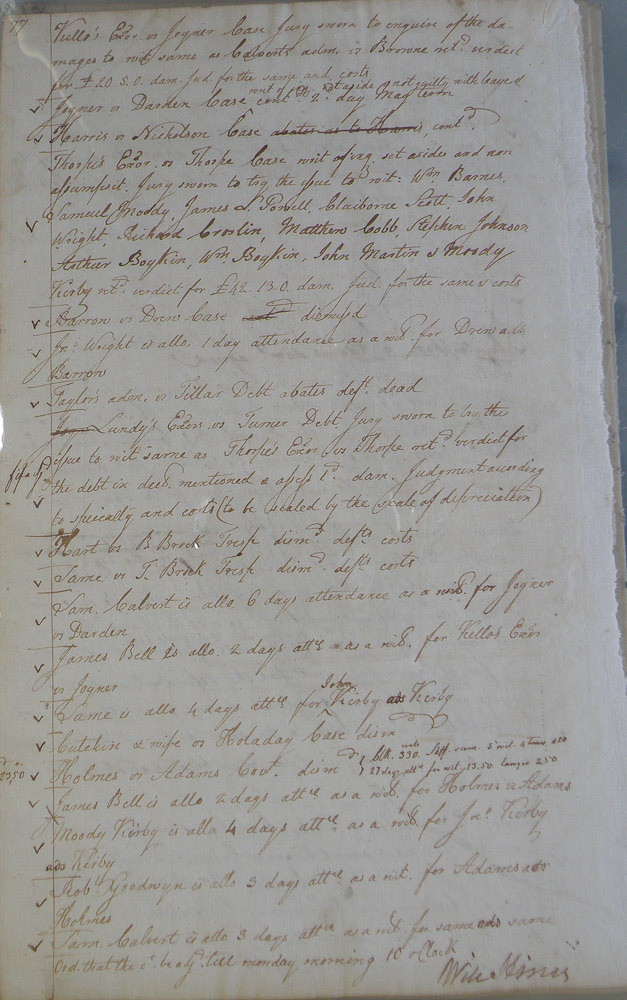 77
Kello's Exor. vs Joyner Case Jury sworn to enquire of the da-
mages to wit same as Calverts adm. vs Browne retd. verdict
for £20.5.0. dam. Jud. for the same and costs
Joyner vs Darden Case contd. 2d. day May term
writ of set aside & not guilty with leave &
Harris vs Nicholson Case abates as to Harris, contd.
Thorpe's Exor. vs Thorpe Case writ of enq. set aside and non
assumpsit. Jury sworn to try the issue to wit: Wm Barnes,
Samuel Moody, James S. Powell, Claiborne Scott, John
Wright, Richard Croslin, Matthew Cobb, Stephen Johnson
Arthur Boykin, Wm Boykin, John Martin & Moody
Kirby retd. verdict for £42.13.0. dam. Jud. for the same & costs
Barrow vs Drew Case contd dismissd
Jno. Wright is allo. 1 day attendance as a wit. for Drew ads.
Barrow
Taylor's adm. vs Tillar Debt abates deft. dead
Lundy's Exors vs Turner Debt, Jury sworn to try the
issue to wit same as Thorpe's Exor vs Thorpe retd. verdict for
the debt in decl. mentioned & assess 1d. dam. Judgment according
to specialty and costs (to be scaled by the scale of depreciation)
Hart vs B Brock Tresp dismd. defts costs
Same vs T. Brock Tresp dismd. defts costs
Sam. Calvert is allo. 6 days attendance as a wit. for Joyner
vs Darden
James Bell is allo. 2 days attce as a wit. for Kello's Exor
vs Joyner
Same is allo 4 days attce for John Kirby ads Kirby
Cutchin & wife vs Holaday Case dism
Holmes vs Adams Covt. dismd.
costs
clk. 330. Sff. 5 wit. 4
27 days attce for wit, 13.50. lawyer 250
James Bell is allo 2 days attce as a wit for Holmes vs Adams
Moody Kirby is allo 4 days attce as a wit for Jno. Kirby
ads Kirby
Robt. Goodwyn is allo 3 days attce. as a wit. for Adams ads
Holmes
Sam. Calvert is allo 3 days attce as a wit for same ads same
Ord. that the Ct. be adjd. till monday morning 10 oClock
Will Hines